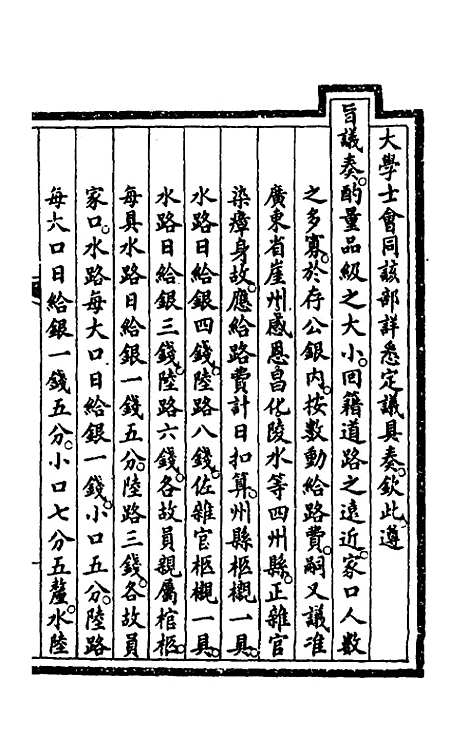 大學士會同該部詳悉定議具奏欽此遵
旨議奏酌量品級之大小回籍道路之遠近家口人數
之多寡於存公銀內按數動給路費嗣又議准
廣東省崖州感恩昌化陵水等四州縣正雜官
染瘴身故應給路費計日扣算州縣柩櫬一具
水路日給銀四錢陸路八錢佐雜官柩櫬一具
水路日給銀三錢陸路六錢各故員親屬棺柩
每具水路日給銀一錢五分陸路三錢各故員
家口水路每大口日給銀一錢小口五分陸路
每大口日給銀一錢五分小口七分五釐水陸